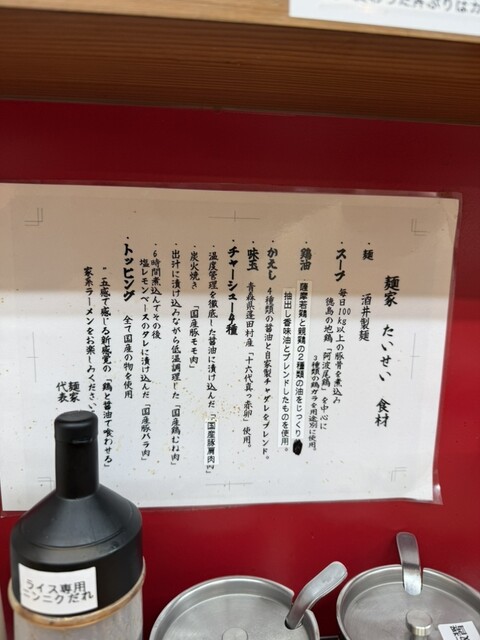 麺家 たいせい 食材
・麺 酒井製麺
・スープ 毎日100kg以上の豚骨を煮込み
徳島の地鶏「阿波尾鶏」を中心に
3種類の鶏ガラを用途別に使用。
・鶏油 薩摩若鶏と親鶏の2種類の油をじっくり
抽出し香味油とブレンドしたものを使用。
・かえし 4種類の醤油と自家製チャダレをブレンド。
・味玉 青森県蓬田村産「十六代真っ赤卵」使用。
・チャーシュー4種
・温度管理を徹底した醤油に漬け込んだ「国産豚肩肉」
・炭火焼き「国産豚モモ肉」
・出汁に漬け込みながら低温調理した「国産鶏むね肉」
・6時間煮込んでその後
塩レモンベースのタレに漬け込んだ「国産豚バラ肉」
・トッピング 全て国産の物を使用
"五感で感じる新感覚の「鶏と醤油で喰わせる」
家系ラーメンをお楽しみください
麺家
代表
ライス専用
ニンニクだれ